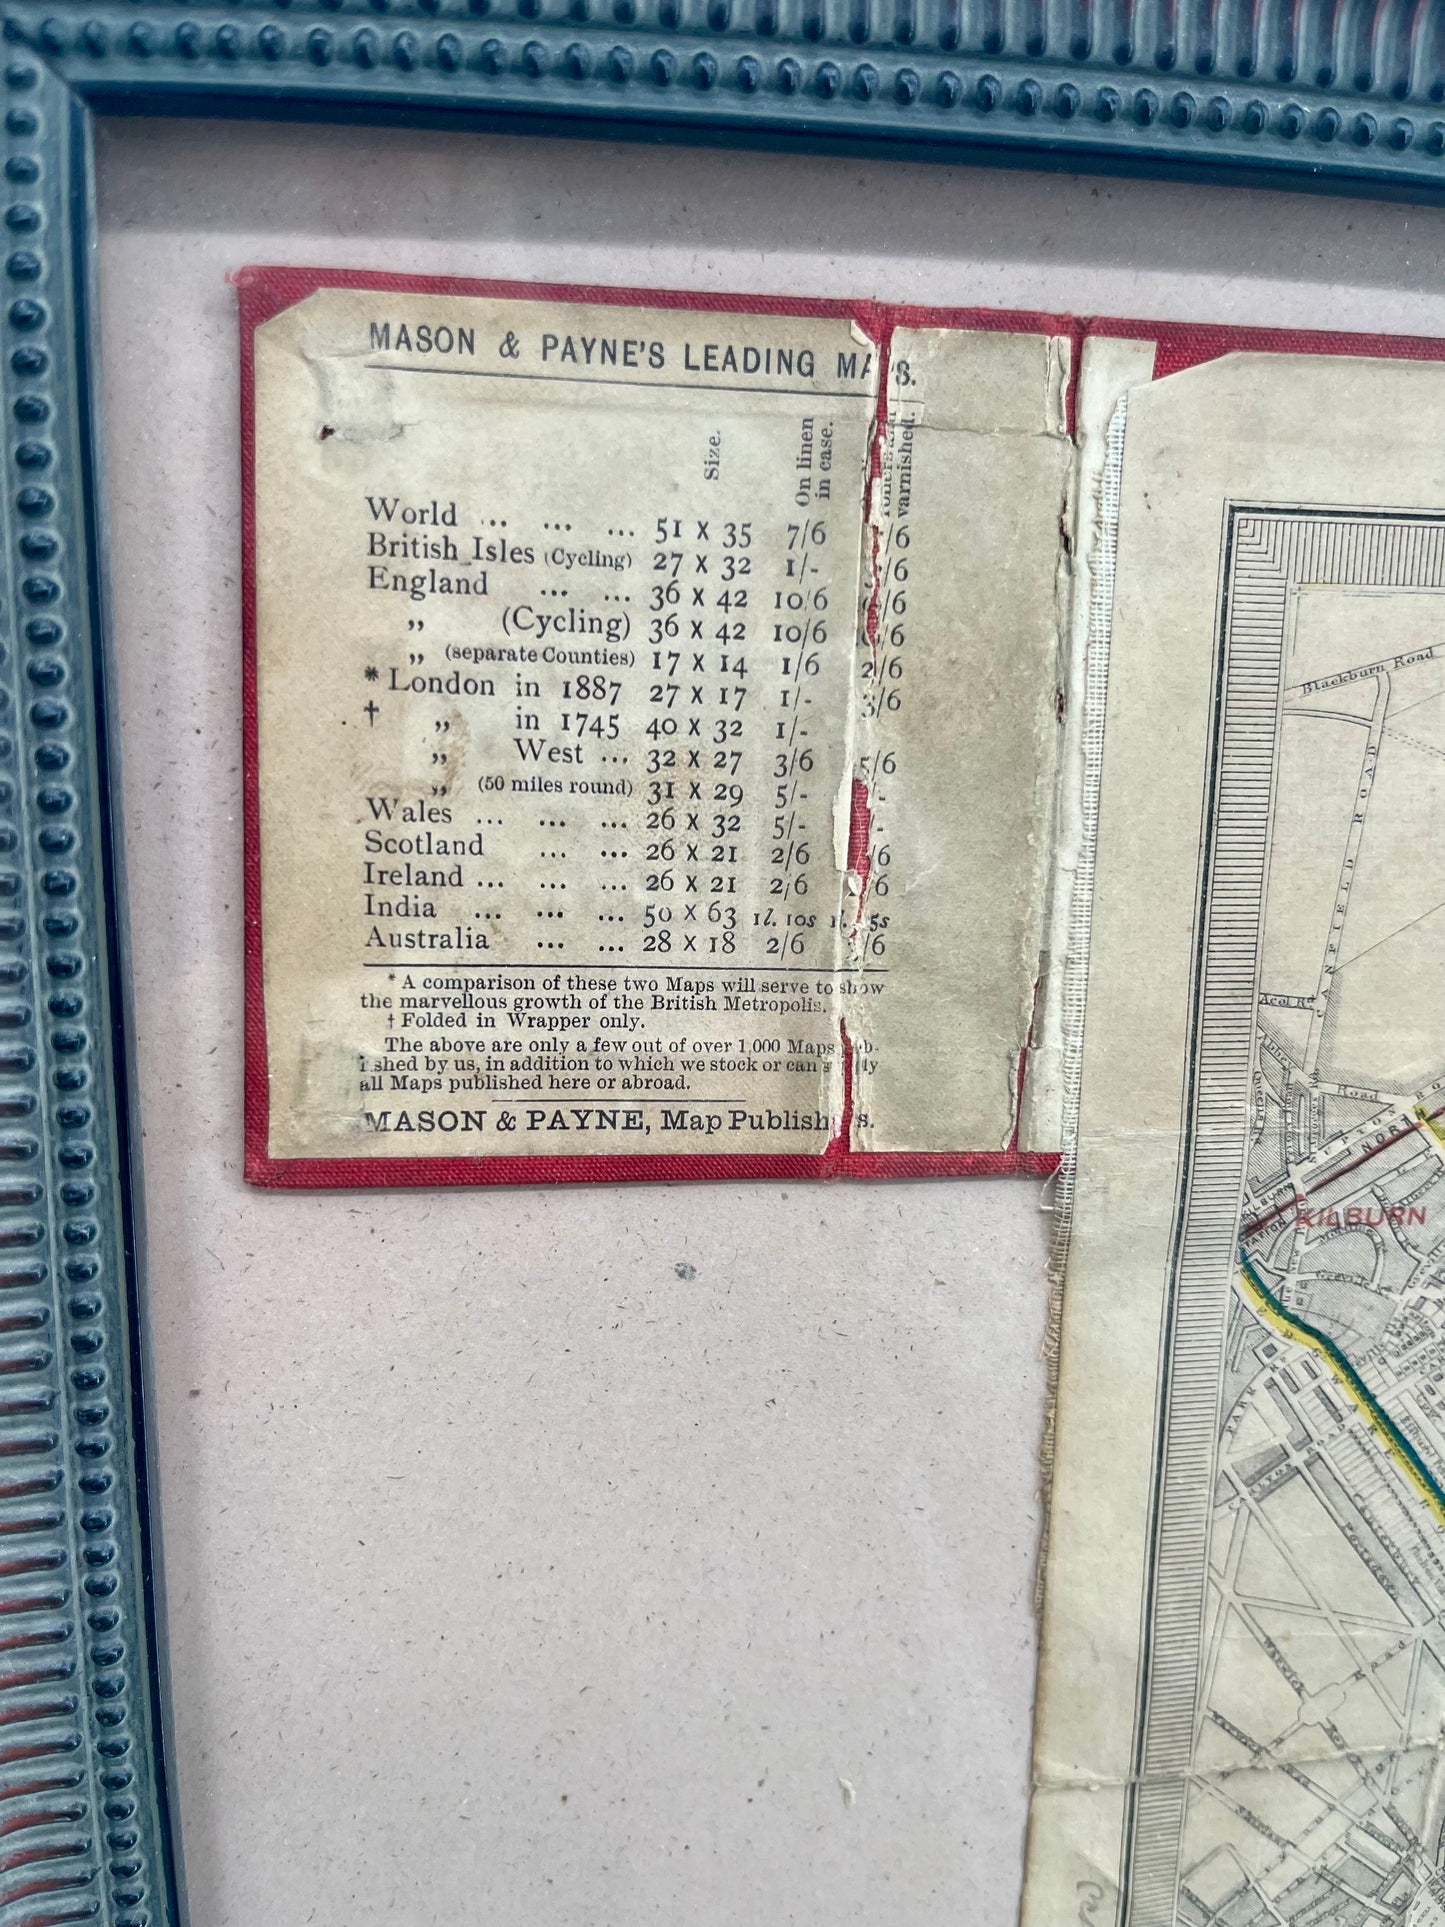 MASON & PAYNE'S LEADING MAPS.
Size.
On linen in case.
varnished.
World ... ... ... 51 X 35 7/6 /6
British Isles (Cycling) 27 X 32 1/- /6
England ... ... 36 X 42 10/6 /6
„ (Cycling) 36 X 42 10/6 /6
„ (separate Counties) 17 X 14 1/6 2/6
* London in 1887 27 X 17 1/- 3/6
† „ in 1745 40 X 32 1/-
„ West ... 32 X 27 3/6 5/6
„ (50 miles round) 31 X 29 5/- -
Wales ... ... ... 26 X 32 5/- /-
Scotland ... ... 26 X 21 2/6 /6
Ireland ... ... ... 26 X 21 2/6 /6
India ... ... ... 50 X 63 1l. 10s 1l. 5s
Australia ... ... 28 X 18 2/6 /6
* A comparison of these two Maps will serve to show
the marvellous growth of the British Metropolis.
† Folded in Wrapper only.
The above are only a few out of over 1,000 Maps pub-
lished by us, in addition to which we stock or can supply
all Maps published here or abroad.
MASON & PAYNE, Map Publishers.
Blackburn Road
CANFIELD ROAD
Acol Rd
Abbey
Road
NORT
KILBURN
STATION
KILBURN
Greville
EDGWARE
PARK RD
Warwick Road